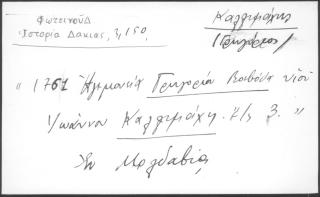 Φωτεινοῦ
Ἱστορία Δακίας, 3, 150,
Καλλιμάχης
(Γρηγόριος)
" 1761 Ἡγεμονία Γρηγορίου Βοεβόδα υἱοῦ
Ἰωάννου Καλλιμάχη. 3. "
Ἐν Μολδαβίᾳ